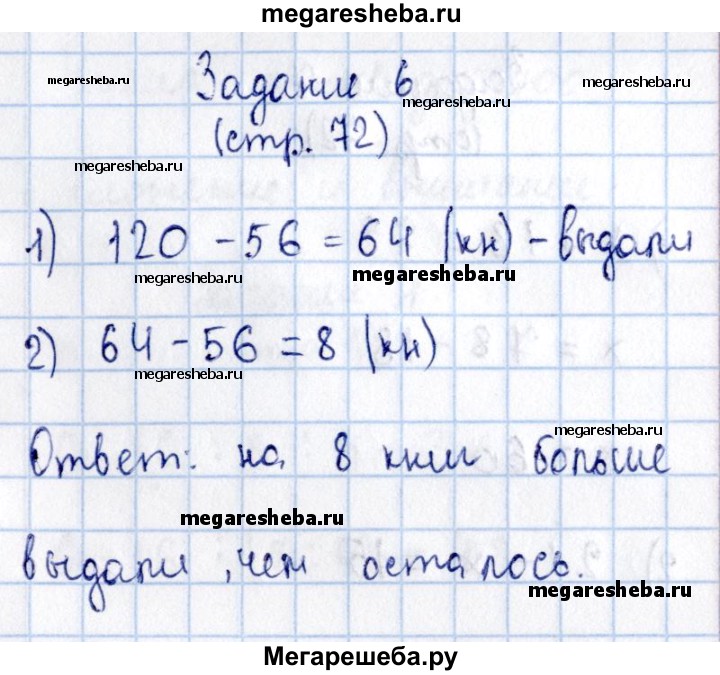 megaresheba.ru
megaresheba.ru
Задание 6
megaresheba.ru
megaresheba.ru
(стр. 72)
megaresheba.ru
1) 120 - 56 = 64 (кн) - выдали
megaresheba.ru
megaresheba.ru
2) 64 - 56 = 8 (кн)
megaresheba.ru
megaresheba.ru
Ответ: на 8 книг больше
megaresheba.ru
выдали, чем осталось.
megaresheba.ru
Мегарешеба.ру